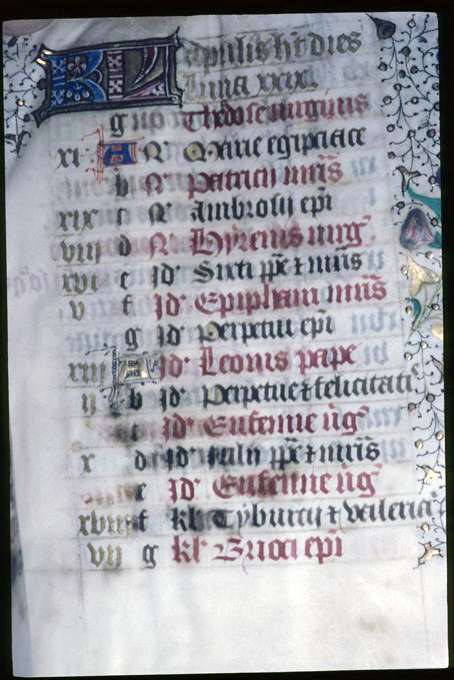 Aprilis hͨt dies
luna xxix.
g no Theodosie virginis
xi A N Marie egipciace
b N Patricii mr̃is
xix c N Ambrosij ep̃i
viij d N Hyrenis uirg̃
xvi e Jd Sixti pp̃e ⁊ mr̃is
v f Jd Epiphani mr̃is
g Jd Perpetui ep̃i
xiij A Jd Leonis pape
ij b Jd Perpetue ⁊ felicitatis
c Jd Eufemie ũg
x d Jd Iulii pp̃e ⁊ mr̃is
e Jd Eufemie ũg
xviij f kl̃ Tyburcij ⁊ valeria
vij g kl̃ ep̃i